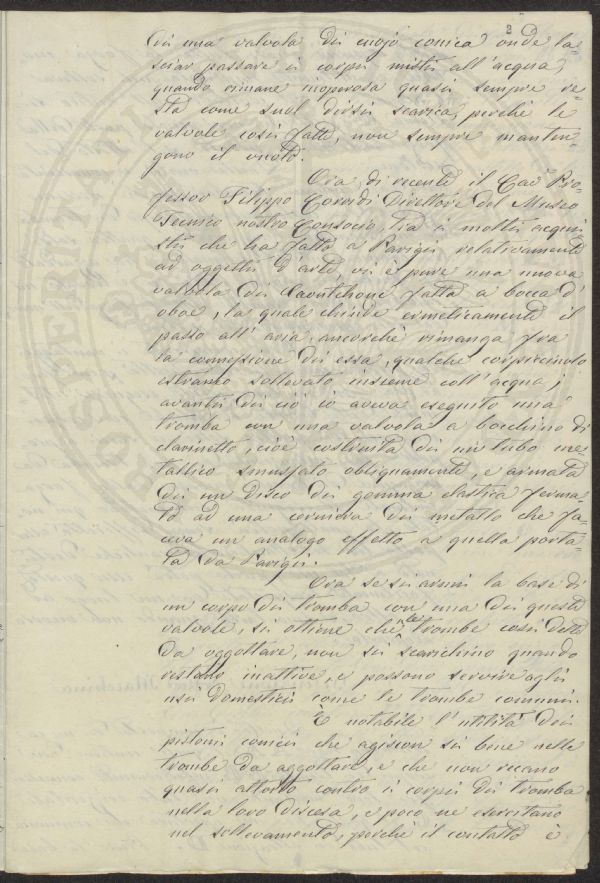 2
di una valvola di cuojo conica onde la-
sciar passare i corpi misti all'acqua,
quando rimane inoperosa quasi sempre re-
sta come suol dirsi scarica, perché le
valvole così fatte, non sempre manten-
gono il vuoto.
Ora, di recente il Cav Pro-
fessor Filippo Corridi Direttore del Museo
Tecnico nostro Consocio, tra i molti acqui
sti che ha fatto a Parigi relativamente
ad oggetti d'arte, vi è pure una nuova
valvola di Caoutchouc fatta a bocca d'
oboe, la quale chiude ermeticamente il
passo all'aria, ancorchè rimanga fra
la commessione di essa, qualche corpicciuolo
estraneo sollevato insieme coll'acqua;
avanti di ciò io aveva eseguito una
tromba con una valvola a bocchino di
clarinetto, cioè costruita di un tubo me-
tallico smussato obliquamente, e armata
di un disco di gomma elastica ferma-
to ad una cerniera di metallo che fa-
ceva un analogo effetto a quella porta-
ta da Parigi.
Ora se si armi la base di
un corpo di tromba con una di queste
valvole, si ottiene che le trombe così dette
da aggottare, non si scarichino quando
restano inattive, e possano servire agli
usi domestici come le trombe comuni.
È notabile l'utilità dei
pistoni conici che agiscon sì bene nelle
trombe da aggottare, e che non recano
quasi attrito contro i corpi di tromba
nella loro discesa, e poco ne esercitano
nel sollevamento, perchè il contatto è